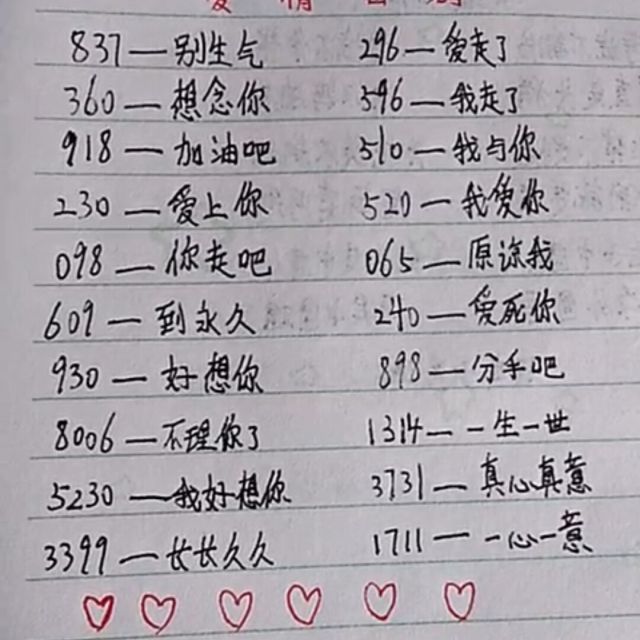 837—别生气 296—爱走了
360—想念你 596—我走了
918—加油吧 510—我与你
230—爱上你 520—我爱你
098—你走吧 065—原谅我
609—到永久 240—爱死你
930—好想你 898—分手吧
8006—不理你了 1314—一生一世
5230—我好想你 3731—真心真意
3399—长长久久 1711—一心一意